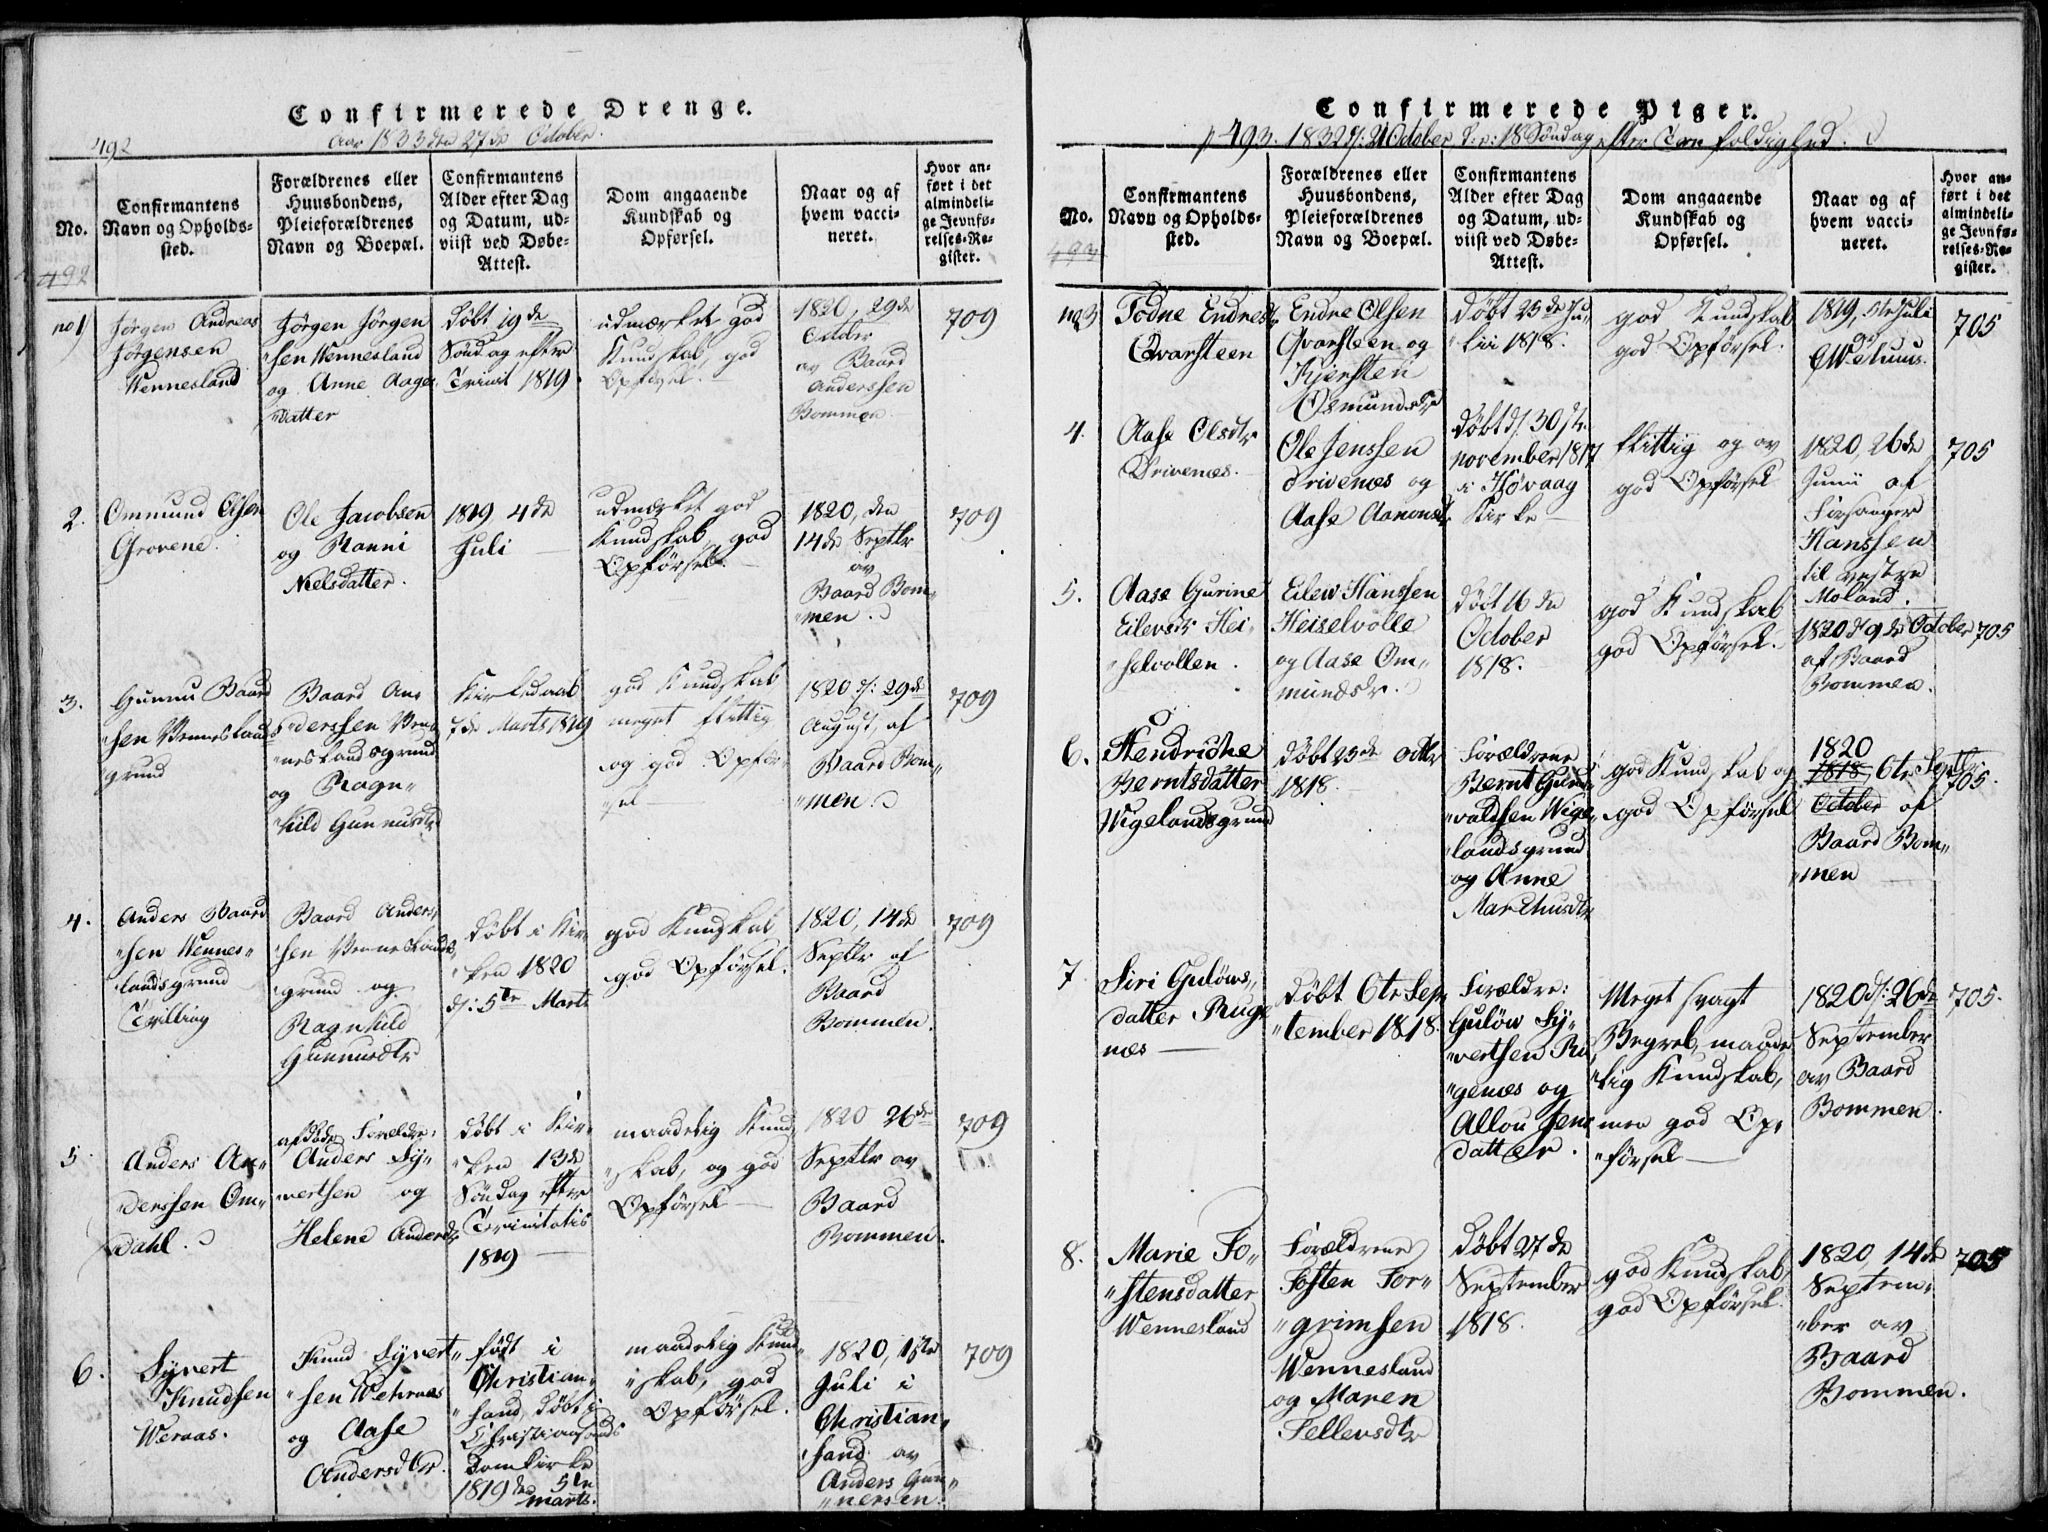 Confirmerede Drenge.
492
Aar 1833 den 27de October.
No.
Confirmantens
Navn og Opholds-
sted.
Forældrenes eller
Huusbondens,
Pleieforældrenes
Navn og Boepæl.
Confirmantens
Alder efter Dag
og Datum, ud-
viist ved Døbe-
Attest.
Dom angaaende
Kundskab og
Opførsel.
Naar og af
hvem vacci-
neret.
Hvor an-
ført i det
almindeli-
ge Jevnfø-
relses-Re-
gister.
492
no 1
Jørgen Andreas
Jørgensen
Wennesland
Jørgen Jørgen
"sen Wennesland
og Anne Aage
"datter
Døbt 19de
Søndag efter
Trinit 1819.
udmærket god
Kundskab, god
Opførsel.
1820, 29de
October
av Baard
Anderssen
Bommen
709
2.
Ommund Olsen
Grovene.
Ole Jacobsen
og Ranni
Nielsdatter.
1819, 4de
Juli
udmærket god
Kundskab, god
Opførsel.
1820, den
14de Septbr
av
Baard Bom-
"men.
709
3.
Gunnu Baard
"sen Venneslands
grund
Baard An-
"derssen Ven-
"neslandsgrund
og Ragn-
"hild Gunnusdtr
Kirkedaab
7de Marts 1819
god Kundskab
meget flittig
og god Opfør-
"sel
1820 d: 29de
August, af
Baard Bom-
"men.
709
4.
Anders Baard
"sen Wennes-
landsgrund
Tvilling
Baard Anders-
sen Venneslands-
grund og
Ragnhild
Gunnusdtr
Døbt i Kir-
"ken 1820
d: 5te Marts
god Kundskab
god Opførsel.
1820, 14de
Septbr af
Baard
Bommen.
709
5.
Anders An-
"derssen Om-
"dahl.
afdøde Forældre:
Anders Sy-
"vertsen og
Helene Andersdtr
Døbt i Kir-
"ken 13de
Søndag efter
Trinitatis
1819
maadelig Kund-
"skab, og god
Opførsel
1820 26de
Septbr av
Baard
Bommen.
709
6.
Syvert
Knudsen
Weraas.
Knud Syvert-
"sen Wehraas
og Aase
Andersdtr.
født i
Christian-
"sand, døbt i
Christiansands
Domkirke
1819 de 5te
marts.
maadelig Kund-
"skab, god
Opførsel.
1820, 15de
Juli i
Christian-
"sand av
Anders Gun-
"nersen.
709
Confirmerede Piger.
p 493. 1832 d: 21 October d: e: 18 Søndag efter Trefoldighed.
No.
Confirmantens
Navn og Opholds-
sted.
Forældrenes eller
Huusbondens,
Pleieforældrenes
Navn og Boepæl.
Confirmantens
Alder efter Dag
og Datum, ud-
viist ved Døbe-
Attest.
Dom angaaende
Kundskab og
Opførsel.
Naar og af
hvem vacci-
neret.
Hvor an-
ført i det
almindeli-
ge Jevnfø-
relses-Re-
gister.
493
no 3
Todne Endresdtr
Qvarsteen
Endre Olsen
Qvarsteen og
Kjersten
Osmundsdtr
Døbt 25de Ju-
"lii 1818.
god Kundskab
god Opførsel.
1819, 5te Juli
705
4.
Aase Olsdtr
Drivenæs.
Ole Jenssen
Drivenæs og
Aase Aanonsdtr
Døbt d: 30te
november 1817
i Høvaag
Kirke
flittig og av
god Opførsel
1820, 26de
Junii af
Forsanger
Hanssen
til vestre
Moland.
705
5.
Aase Gurine
Eilevsdtr Hei-
"selvollen.
Eilew Hanssen
Heiselvolle
og Aase Om-
mundsdtr.
Døbt 16de
October
1818.
god Kundskab
god Opførsel.
1820 d 9de October
af Baard
Bommen.
705
6.
Hendriche
Berntsdatter
Wigelandsgrund
Døbt 25de Octbr
1818.
Forældrene
Bernt Gun-
"valdsen Wige-
"landsgrund
og Anne
Marchusdtr
god Kundskab og
god Opførsel
1820
1818, 6te Septbr
October af
Baard Bom-
"men
705.
7.
Siri Guløws-
datter Ruge
næs
Døbt 6te Sep-
"tember 1818.
Forældre:
Guløw Sy-
"vertsen Ru
"genæs og
Allou Jens
datter.
Meget svagt
Begreb, maade
"lig Kundskab,
men god Op-
"førsel
1820 d: 26de
September
av Baard
Bommen.
705.
8.
Marie To-
"stensdatter
Wennesland
Forældrene
Tosten Tor-
"grimsen
Wennesland
og Maren
Tellevsdtr
Døbt 27de
September
1818.
god Kundskab,
god Opførsel.
1820, 14de
Septem-
"ber av
Baard
Bommen.
705